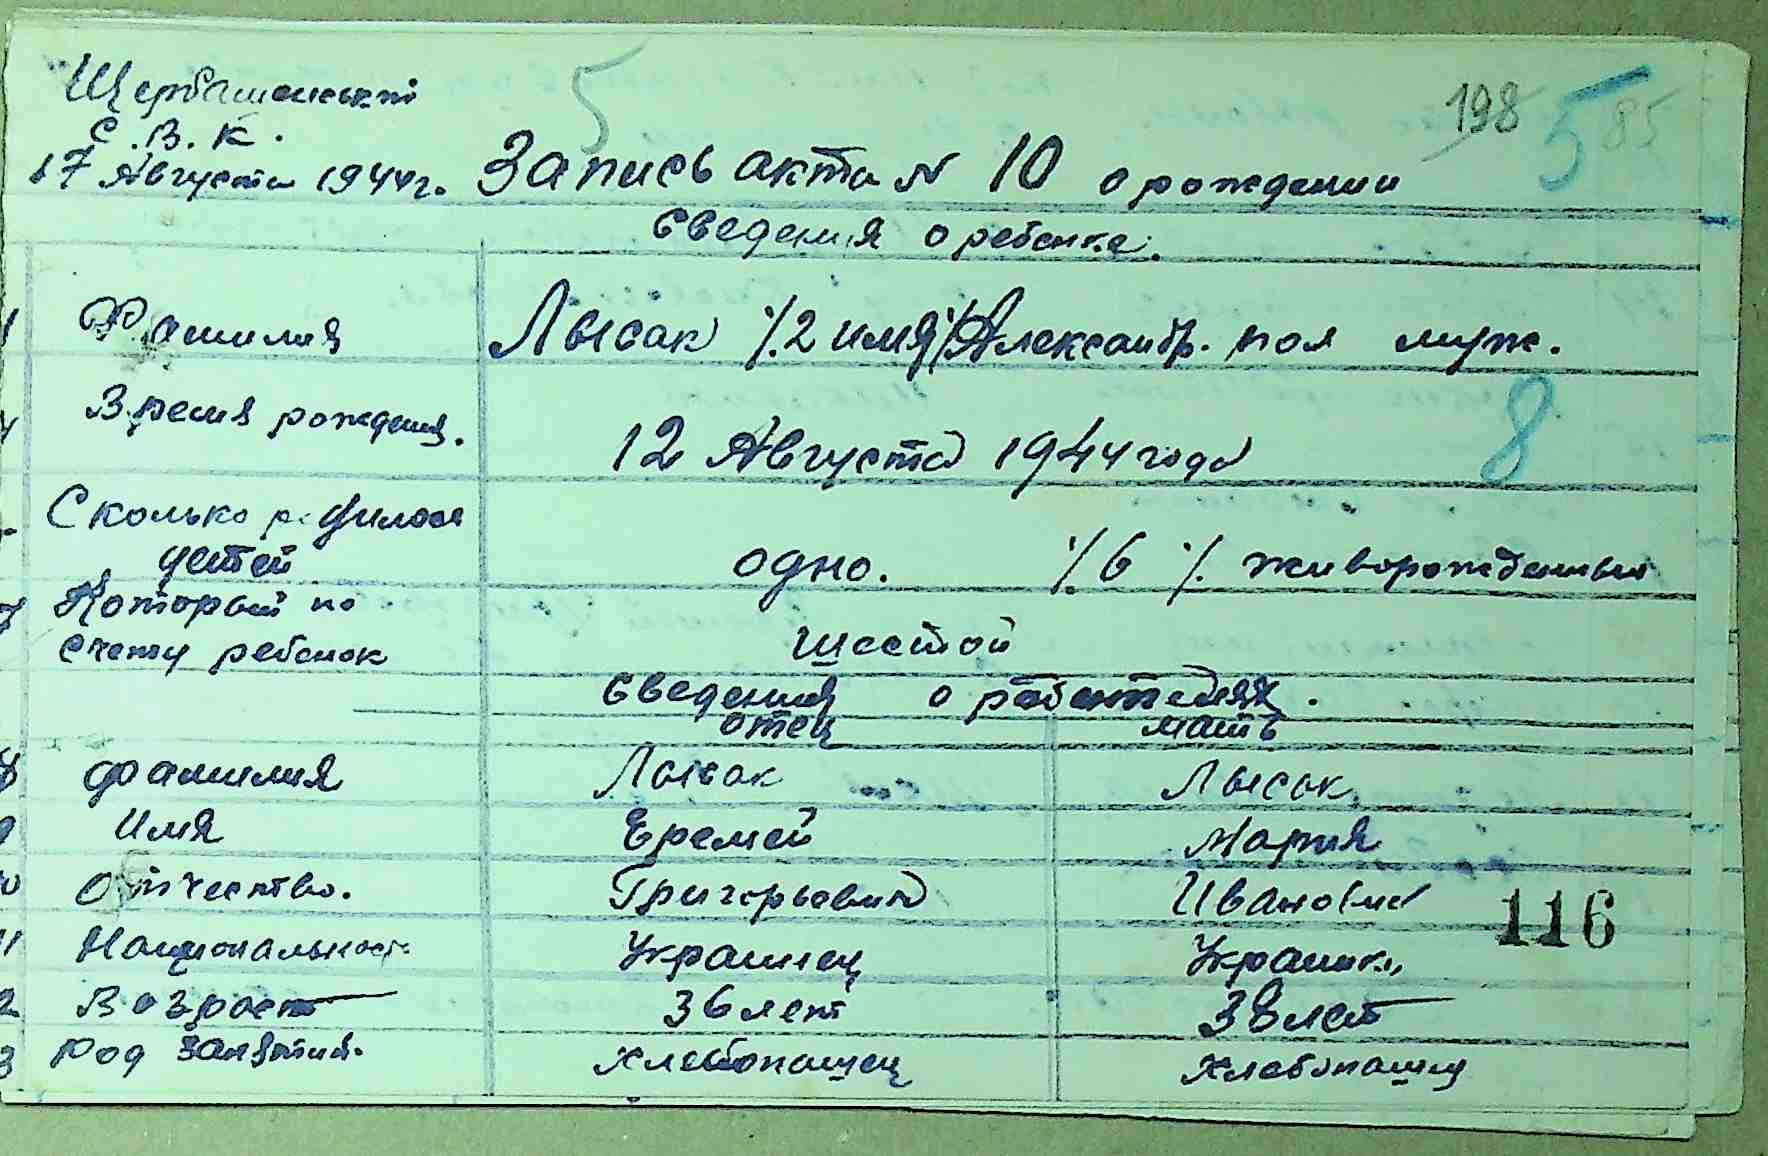 Щербашенський
С.В.К.
17 Августа 1944 г. Запись акта № 10 о рождении
5
198
5
85
Сведения о ребенке.
1 Фамилия Лысак /.2 имя/ Александр. пол муж.
4 Время рождения. 12 Августа 1944 года
8
Сколько родилось детей одно. /6/. живорожденный
7 Который по счету ребенок шестой
Сведения о родителях.
отец мать
8 Фамилия Лысак Лысак
9 Имя Еремей Мария
10 Отчество. Григорьевич Ивановна
116
11 Национальность Украинец Украинка
2 Возраст 36 лет 38 лет
3 Род занятия. хлебопашец хлебопашец